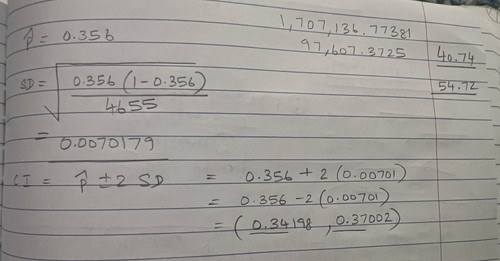 p̂ = 0.356
1,707,136.77381
97,607.3725
40.74
54.72
SD = √ 0.356 (1 - 0.356) / 4655
= 0.0070179
CI = p̂ ± 2 SD = 0.356 + 2 (0.00701)
= 0.356 - 2 (0.00701)
= (0.34198, 0.37002)